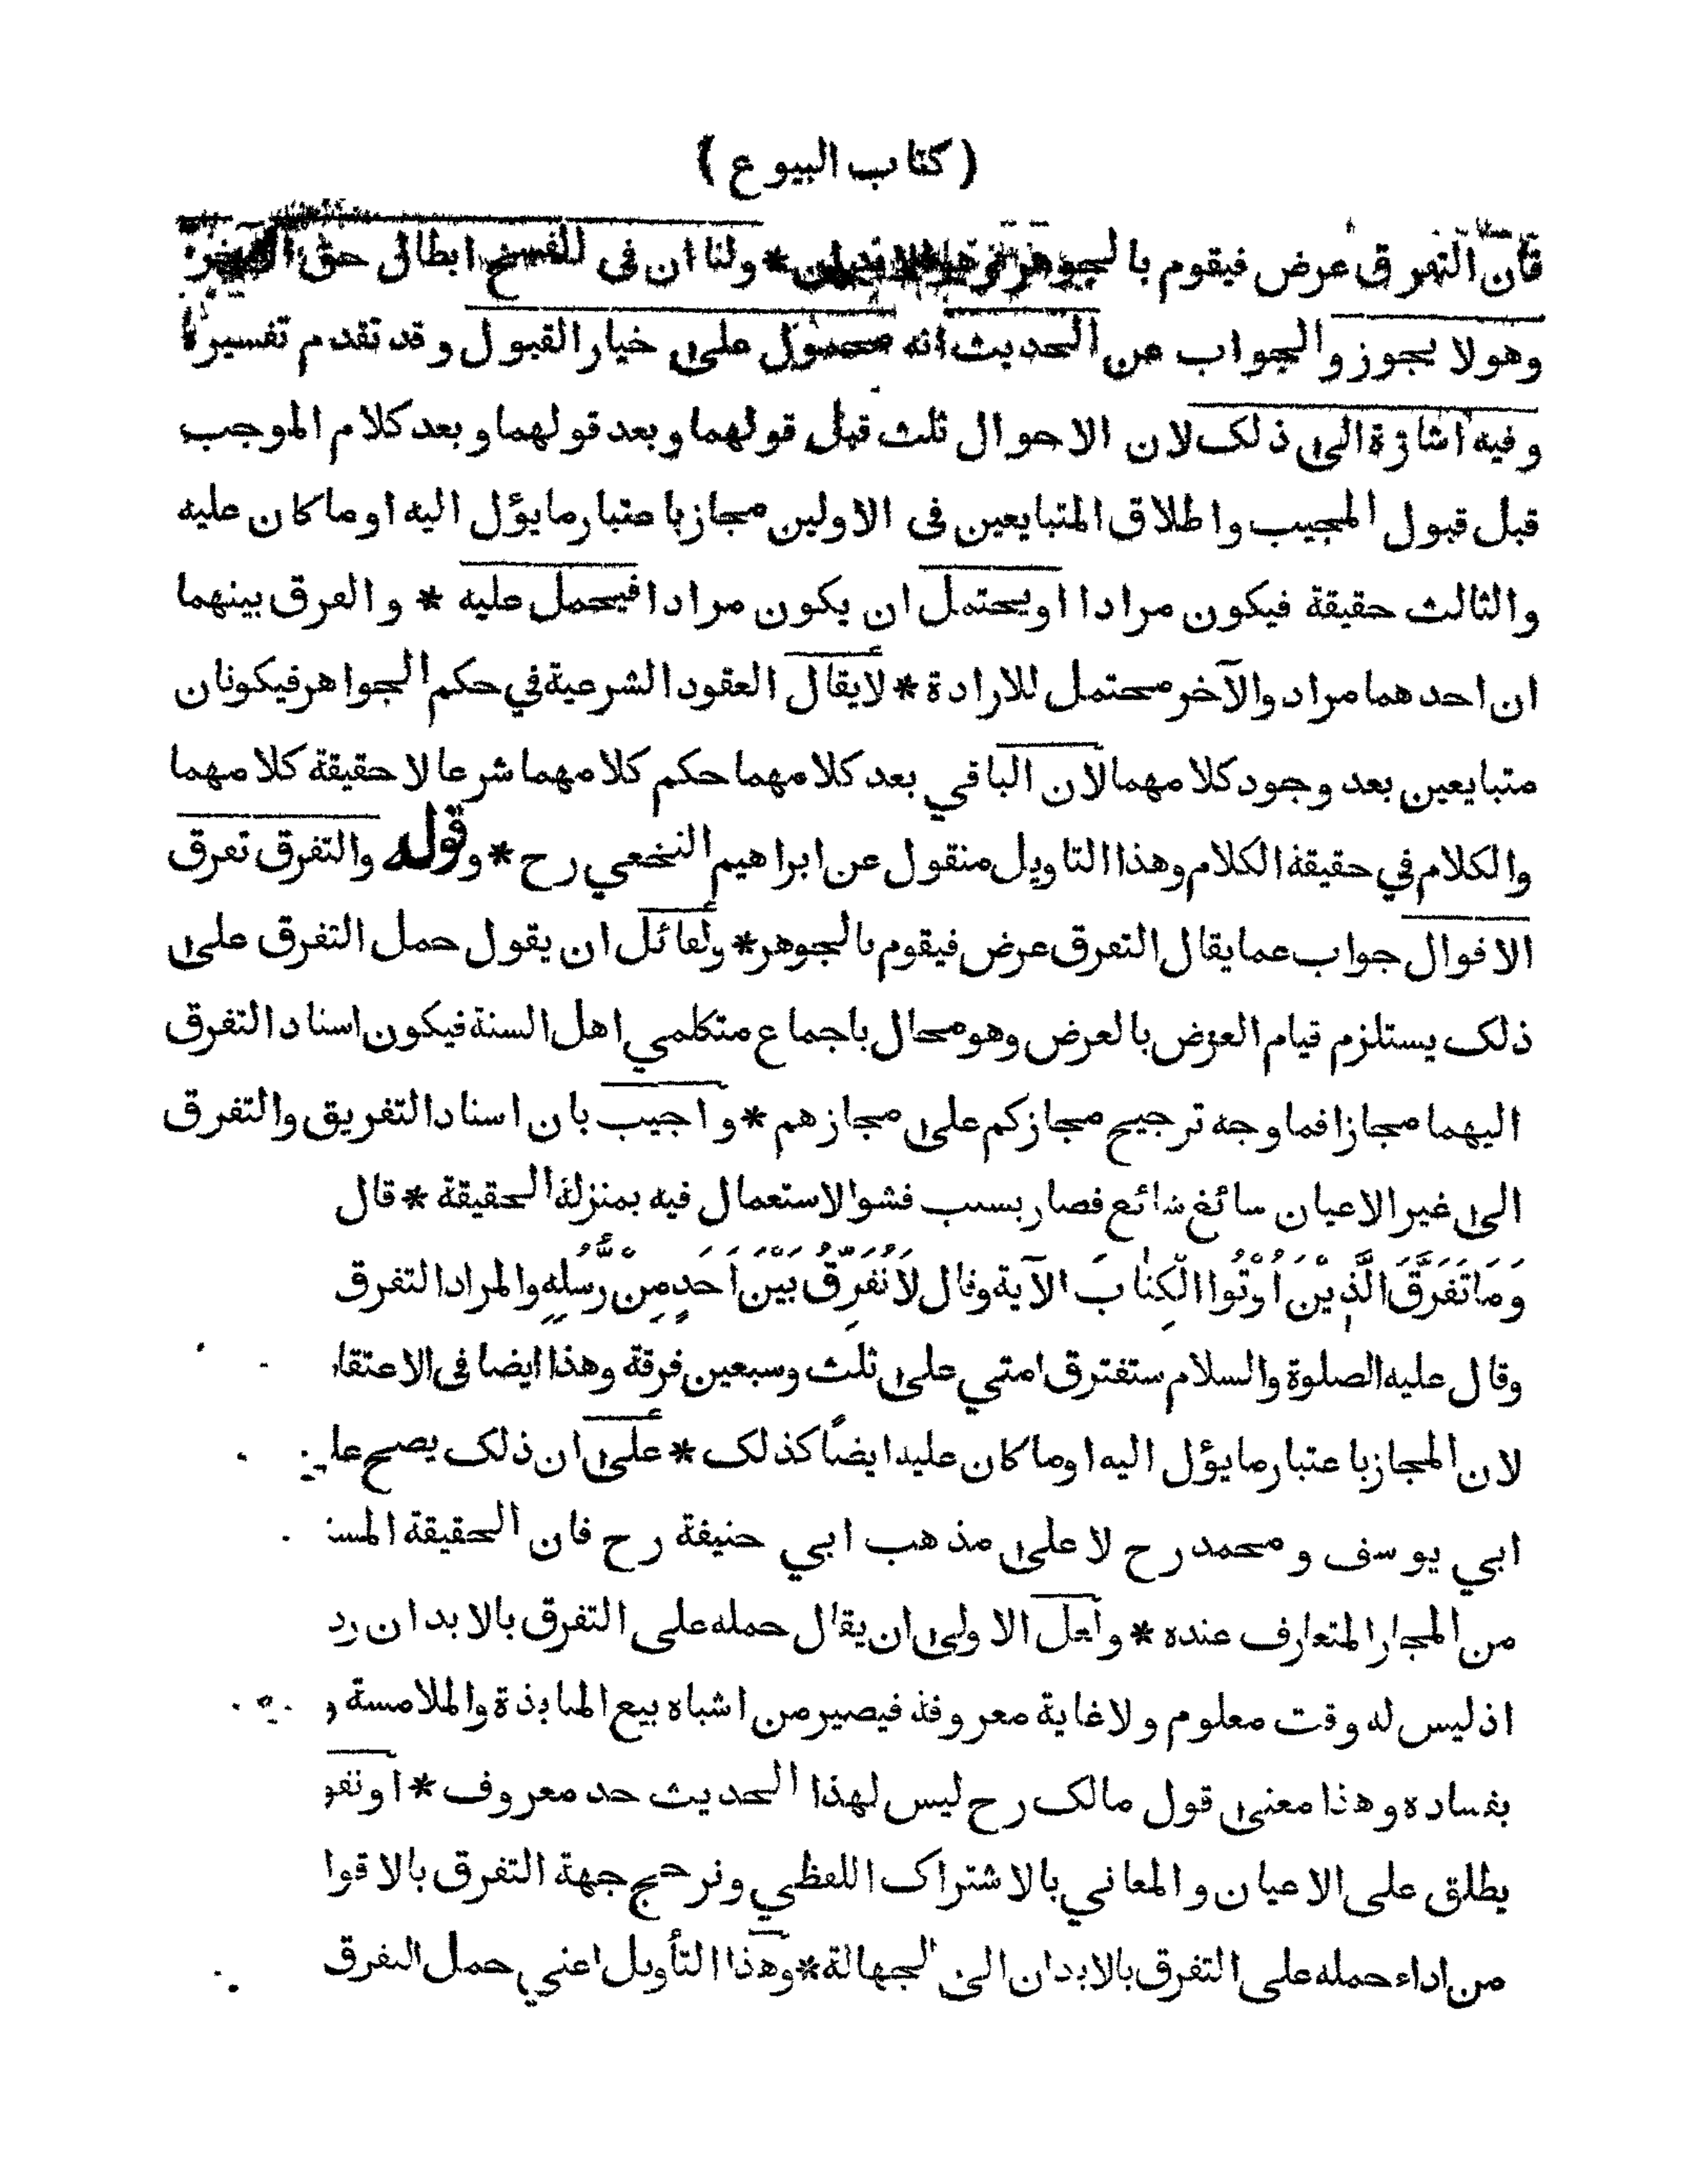 ( كتاب البيوع )
فان التفرق عرض فيقوم بالجوهر * ولنا ان في الفسخ ابطال حق الآخر
وهو لا يجوز والجواب عن الحديث انه محمول على خيار القبول وقد تقدم تفسيره
وفيه اشارة الى ذلك لان الاحوال ثلث قبل قولهما وبعد قولهما وبعد كلام الموجب
قبل قبول المجيب واطلاق المتبايعين في الاولين مجاز باعتبار ما يؤل اليه او ما كان عليه
والثالث حقيقة فيكون مرادا او يحتمل ان يكون مرادا فيحمل عليه * والفرق بينهما
ان احدهما مراد والآخر محتمل للارادة * لا يقال العقود الشرعية في حكم الجواهر فيكونان
متبايعين بعد وجود كلامهما لان الباقي بعد كلامهما حكم كلامهما شرعا لا حقيقة كلامهما
والكلام في حقيقة الكلام وهذا التاويل منقول عن ابراهيم النخعي رح * وقوله والتفرق تفرق
الاقوال جواب عما يقال التفرق عرض فيقوم بالجوهر * ولقائل ان يقول حمل التفرق على
ذلك يستلزم قيام العرض بالعرض وهو محال باجماع متكلمي اهل السنة فيكون اسناد التفرق
اليهما مجازا فما وجه ترجيح مجازكم على مجازهم * واجيب بان اسناد التفريق والتفرق
الى غير الاعيان سائغ شائع فصار بسبب فشو الاستعمال فيه بمنزلة الحقيقة * قال
وَمَا تَفَرَّقَ الَّذِيْنَ اُوْتُوا الْكِتٰابَ الآية وقال لَا نُفَرِّقُ بَيْنَ اَحَدٍ مِنْ رُّسُلِهِ والمراد التفرق
وقال عليه الصلوة والسلام ستفترق امتي على ثلث وسبعين فرقة وهذا ايضا في الاعتقا
لان المجاز باعتبار ما يؤل اليه او ما كان عليه ايضاً كذلك * على ان ذلك يصح
ابي يوسف ومحمد رح لا على مذهب ابي حنيفة رح فان الحقيقة
من المجاز المتعارف عنده * ولعل الاولى ان يقال حمله على التفرق بالابدان رد
اذ ليس له وقت معلوم ولا غاية معروفة فيصير من اشباه بيع المنابذة والملامسة و
بفساده وهذا معنى قول مالك رح ليس لهذا الحديث حد معروف *
يطلق على الاعيان والمعاني بالاشتراك اللفظي وترجيح جهة التفرق بالاقوا
من اداء حمله على التفرق بالابدان الى الجهالة * وهذا التأويل اعني حمل التفرق